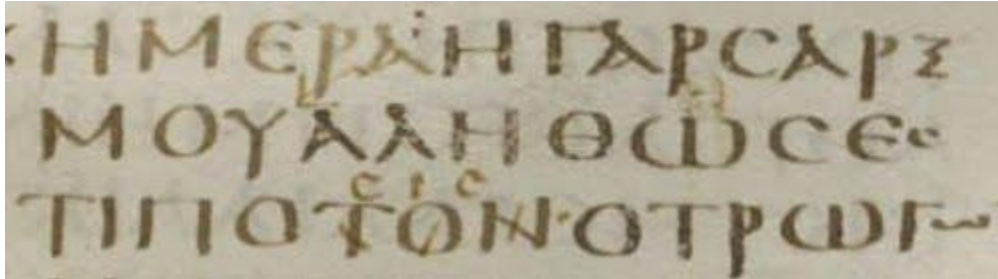 ΗΜΕΡΑΗΓΑΡϹΑΡΞ
ΜΟΥΑΛΗΘΩϹΕϹ
ΤΙΠΟΤΟΝ·ΟΤΡΩΓω